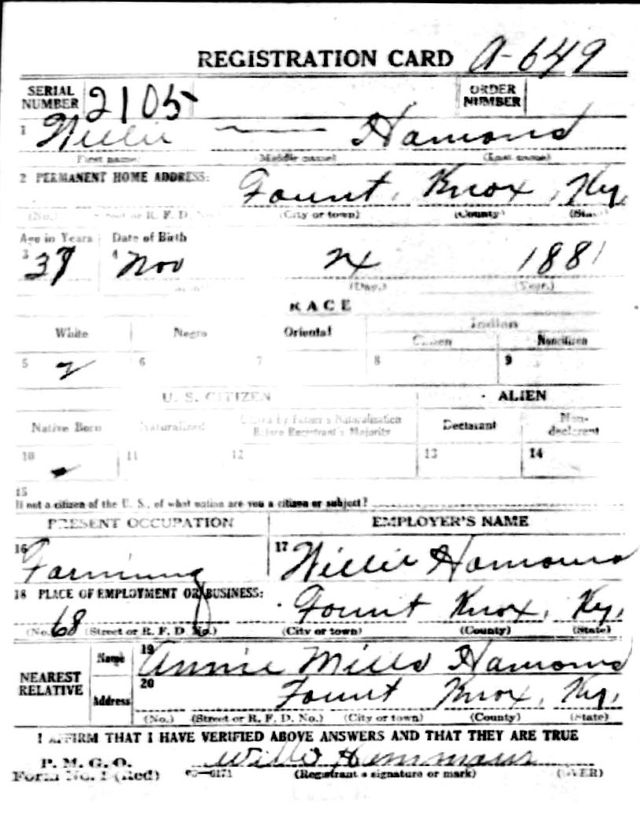 REGISTRATION CARD A-649
SERIAL NUMBER 2105 ORDER NUMBER
1 Willie — Hamons
First name) (Middle name) (Last name)
2 PERMANENT HOME ADDRESS: Fount, Knox, Ky.
(No.) Street or R. F. D. No. (City or town) (County) (State)
Age in Years Date of Birth
3 37 4 Nov 24 1881
(Day.) (Year.)
RACE
White Negro Oriental Indian
Citizen Noncitizen
5 6 7 8 9
U. S. CITIZEN ALIEN
Native Born Naturalized Citizen by Father's Naturalization Before Registrant's Majority Declarant Non-declarant
10 11 12 13 14
15
If not a citizen of the U. S., of what nation are you a citizen or subject?
PRESENT OCCUPATION EMPLOYER'S NAME
16 Farming 17 Willie Hamons
18 PLACE OF EMPLOYMENT OR BUSINESS:
68 Fount Knox, Ky.
(No.) (Street or R. F. D. No.) (City or town) (County) (State)
NEAREST RELATIVE Name 19 Annie Mills Hamons
Address 20 Fount Knox, Ky.
(No.) (Street or R. F. D. No.) (City or town) (County) (State)
I AFFIRM THAT I HAVE VERIFIED ABOVE ANSWERS AND THAT THEY ARE TRUE
P. M. G. O.
Form No. 1 (Red) 03—6171 (Registrant's signature or mark) (OVER)